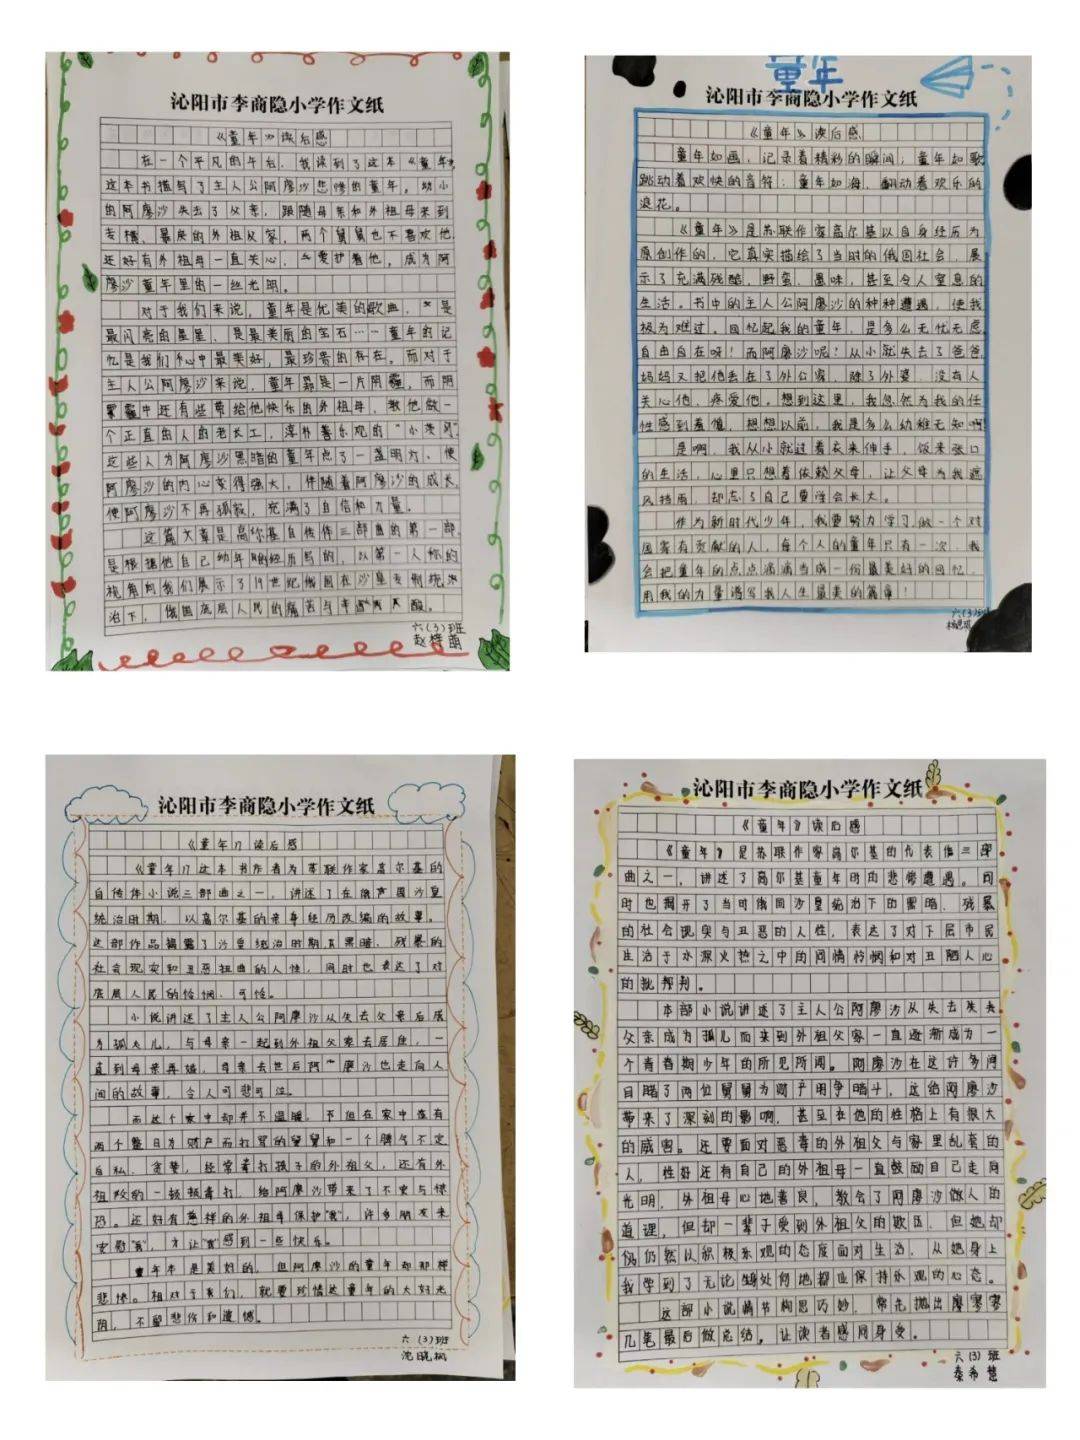 沁阳市李商隐小学作文纸
《童年》读后感
在一个平凡的午后，我读到了这本《童年》
这本书描写了主人公阿廖沙悲惨的童年。幼小
的阿廖沙失去了父亲，跟随母亲和外祖母来到
专横、暴戾的外祖父家，两个舅舅也不喜欢他
还好有外祖母一直关心、爱护着他，成为阿
廖沙童年里的一丝光明。
对于我们来说，童年是优美的歌曲，是
最闪亮的星星，是最美丽的宝石……童年的记
忆是我们心中最美好，最珍贵的存在。而对于
主人公阿廖沙来说，童年是一片阴霾，而阴
霾中还有些带给他快乐的外祖母，教他做一
个正直的人的老长工，淳朴善乐观的“小茨冈”
这些人为阿廖沙黑暗的童年点了一盏明灯、使
阿廖沙的内心变得强大，伴随着阿廖沙的成长
使阿廖沙不再孤寂，充满了自信和力量。
这篇文章是高尔基自传体三部曲的第一部
是根据他自己幼年的经历写的，以第一人称的
视角向我们展示了19世纪俄国在沙皇专制统
治下，俄国底层人民的痛苦与辛酸。
六(3)班
童年
沁阳市李商隐小学作文纸
《童年》读后感
童年如画，记录着精彩的瞬间；童年如歌
跳动着欢快的音符；童年如海，翻动着欢乐的
浪花。
《童年》是苏联作家高尔基以自身经历为
原创作的，它真实描绘了俄国社会，展
示了充满残酷，野蛮，愚昧，甚至令人窒息的
生活。书中的主人公阿廖沙的种种遭遇，使我
极为难过。回忆起我的童年，是多么无忧无虑
自由自在呀！而阿廖沙呢？从小就失去了爸爸
妈妈又把他丢在了外公家，除了外婆，没有人
关心他，疼爱他。想到这里，我忽然为我的任
性感到羞愧，想想以前，我是多么幼稚无知啊！
是啊，我从小就过着衣来伸手，饭来张口
的生活，心里只想着依赖父母，让父母为我遮
风挡雨，却忘了自己要学会长大。
作为新时代少年，我要努力学习，做一个对
国家有贡献的人，每个人的童年只有一次，我
会把童年的点点滴滴当成一份最美好的回忆，
用我的力量谱写我人生最美的篇章！
六(3)班
沁阳市李商隐小学作文纸
《童年》读后感
《童年》这本书作者为苏联作家高尔基的
自传体小说三部曲之一，讲述了在俄国沙皇
统治时期，以高尔基的亲身经历改编的故事。
这部作品揭露了沙皇统治时期黑暗、残暴的
社会现实和丑恶扭曲的人性，同时也表达了对
底层人民的怜悯、可怜。
小说讲述了主人公阿廖沙从失去父亲后成
为孤儿，与母亲一起到外祖父家去居住，一
直到母亲再婚，母亲去世后阿廖沙也走向人
间的故事，令人可悲可泣。
而这个家中却并不温暖。不但在家中有
两个整日为财产而打骂的舅舅和一个脾气不定
自私、贪婪，经常毒打孩子的外祖父，还有外
祖父的一顿顿毒打，给阿廖沙带来了不安与惊
恐。还好有慈祥的外祖母保护“我”，许多朋友来
安慰“我”，才让“我”感到一些快乐。
童年本是美好的，但阿廖沙的童年却那样
悲惨。相对于我们，就要珍惜这童年的大好光
阴，不留悲伤和遗憾。
六(3)班
沈晓桐
沁阳市李商隐小学作文纸
《童年》读后感
《童年》是苏联作家高尔基的代表作三部
曲之一，讲述了高尔基童年时的悲惨遭遇。同
时也揭开了当时俄国沙皇统治下的黑暗、残暴
的社会现实与丑恶的人性，表达了对下层市民
生活于水深火热之中的同情怜悯和对丑陋人心
的批判。
本部小说讲述了主人公阿廖沙从失去
父亲成为孤儿而来到外祖父家一直逐渐成为一
个青春期少年的所见所闻。阿廖沙在这许多间
目睹了两位舅舅为财产明争暗斗，这给阿廖沙
带来了深刻的影响，甚至在他的性格上有很大
的威害。还要面对恶毒的外祖父与家里乱套的
人，性好还有自己的外祖母一直鼓励自己走向
光明，外祖母心地善良，教会了阿廖沙做人的
道理，但却一辈子受到外祖父的欺压，但她却
仍仍然以积极乐观的态度面对生活，从她身上
我学到了无论身处何地都应保持乐观的心态。
这部小说情节构思巧妙，常先抛出廖寥寥
几笔最后做总结，让读者感同身受。
六(3)班
秦希慧